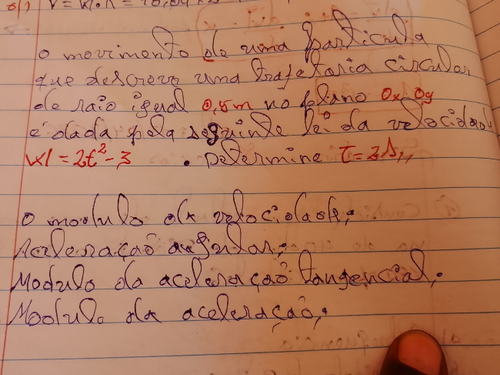 o movimento de uma particula
que descreve uma trajetoria circular
de raio igual 0,8m no plano Ox Oy
é dada pela seguinte lei da velocidade
W1 = 2t² - 3 . Determine
o modulo da velocidade;
Aceleração angular;
Modulo da aceleração tangencial;
Modulo da aceleração;